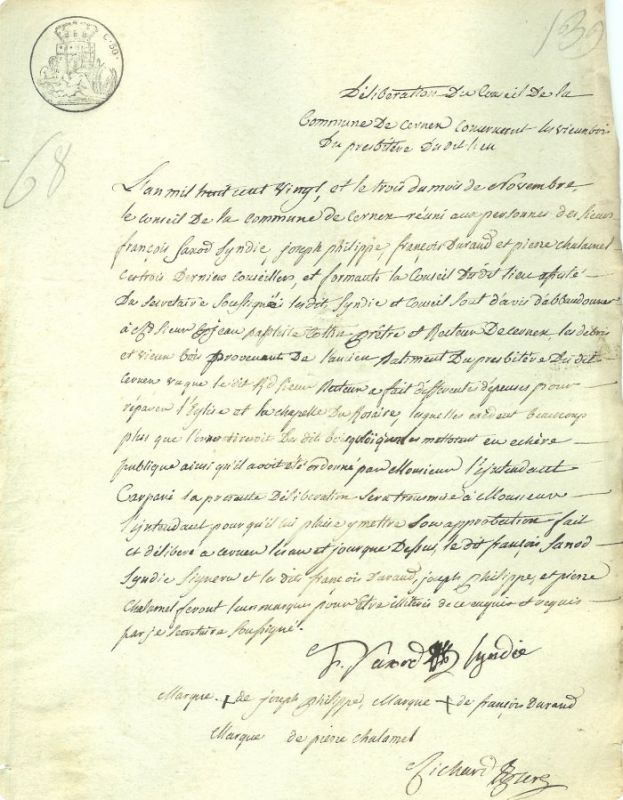 C. 50
139
68
Déliberation Du Conseil De la
Commune De Cernex Concernent les vieux bois
Du presbitère Dudit lieu
L'an mil huit cent vingt, et le trois du mois de Novembre
le Conseil De la Commune de Cernex réuni aux personnes des sieurs
françois Saxod Syndic, joseph philippe, françois Durand et pierre Chalamel
Ces trois Derniers Conseillers, et formants le Conseil Dudit lieu
Du Secretaire Soussigné lesdit, Syndic et Conseil Sont d'avis d'abbandonner
à Rd sieur jean baptiste prêtre et Recteur De Cernex, les débris
et vieux bois provenant De l'ancien Batiment Du presbitère Du dit
Cernex vu que le dit Rd sieur Recteur a fait differente dépenses pour
réparer l'Eglise et la chapelle Du Rosaire, lesquelles excedent beaucoup
plus que l'on Des dit bois en les mettant en echère
publique ainsi qu'il avoit été ordonné par Monsieur l'jntendant
la presente Déliberation Sera trans mise à Monsieur
l'jntendant pour qu'il lui plaise y mettre Son approbation fait
et déliberé a Cernex les an et jour que Dessus, le dit françois Saxod
Syndic Signera et les dits françois Durand, joseph philippe, et pierre
Chalamel feront leur marques pour être illiterés de ce enquis et requis
par je Secretaire Soussigné.
f. Saxod Syndic
Marque + de joseph philippe, Marque + de françois Durand
Marque de pierre Chalamel
Richard